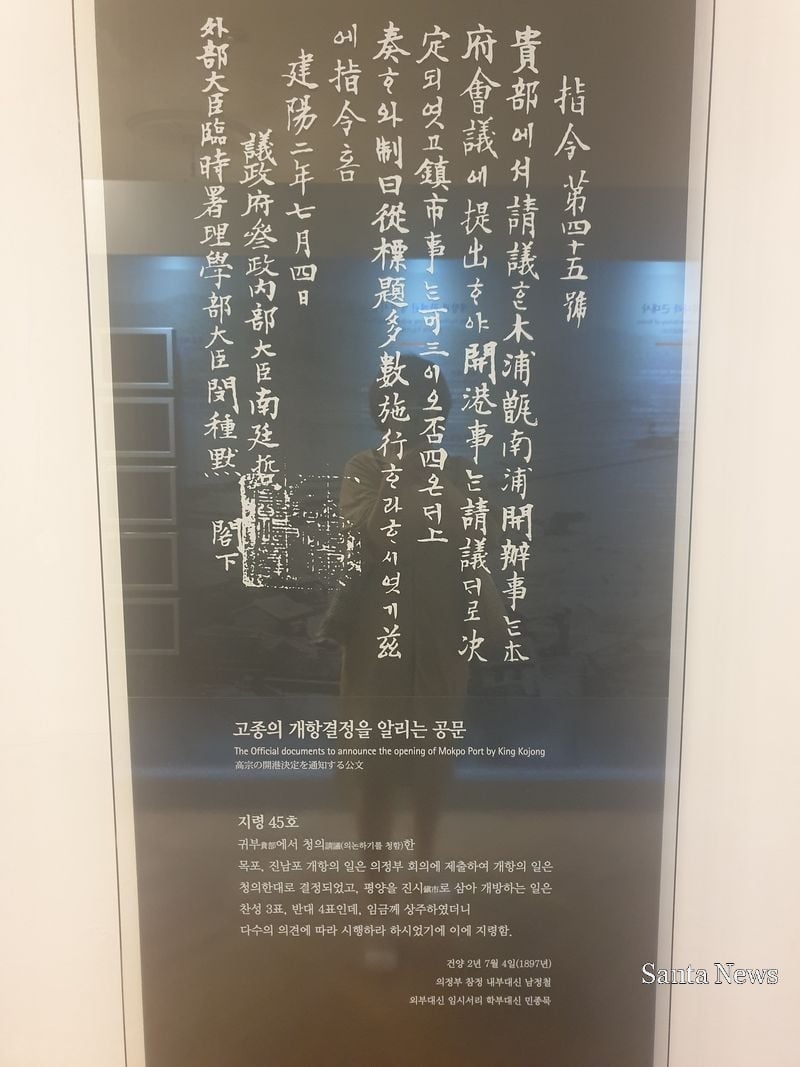 指令 第四十五號
貴部에셔 請議ᄒᆞᆫ 木浦甑南浦開辦事ᄂᆞᆫ 本
府會議에 提出ᄒᆞ야 開港事ᄂᆞᆫ 請議더로 決
定되엿고 鎭市事ᄂᆞᆫ 可三이오 否四온더上
奏ᄒᆞ와 制曰從標題多數施行ᄒᆞ라ᄒᆞ시엿기 玆
에 指令홈
建陽二年七月四日
議政府參政內部大臣 南廷哲
外部大臣臨時署理學部大臣 閔種黙 閣下
고종의 개항결정을 알리는 공문
The Official documents to announce the opening of Mokpo Port by King Kojong
高宗の開港決定を通知する公文
지령 45호
귀부貴部에서 청의請議(의논하기를 청함)한
목포, 진남포 개항의 일은 의정부 회의에 제출하여 개항의 일은
청의한대로 결정되었고, 평양을 진시鎭市로 삼아 개방하는 일은
찬성 3표, 반대 4표인데, 임금께 상주하였더니
다수의 의견에 따라 시행하라 하시었기에 이에 지령함.
건양 2년 7월 4일(1897년)
의정부 참정 내부대신 남정철
외부대신 임시서리 학부대신 민종묵
Santa News